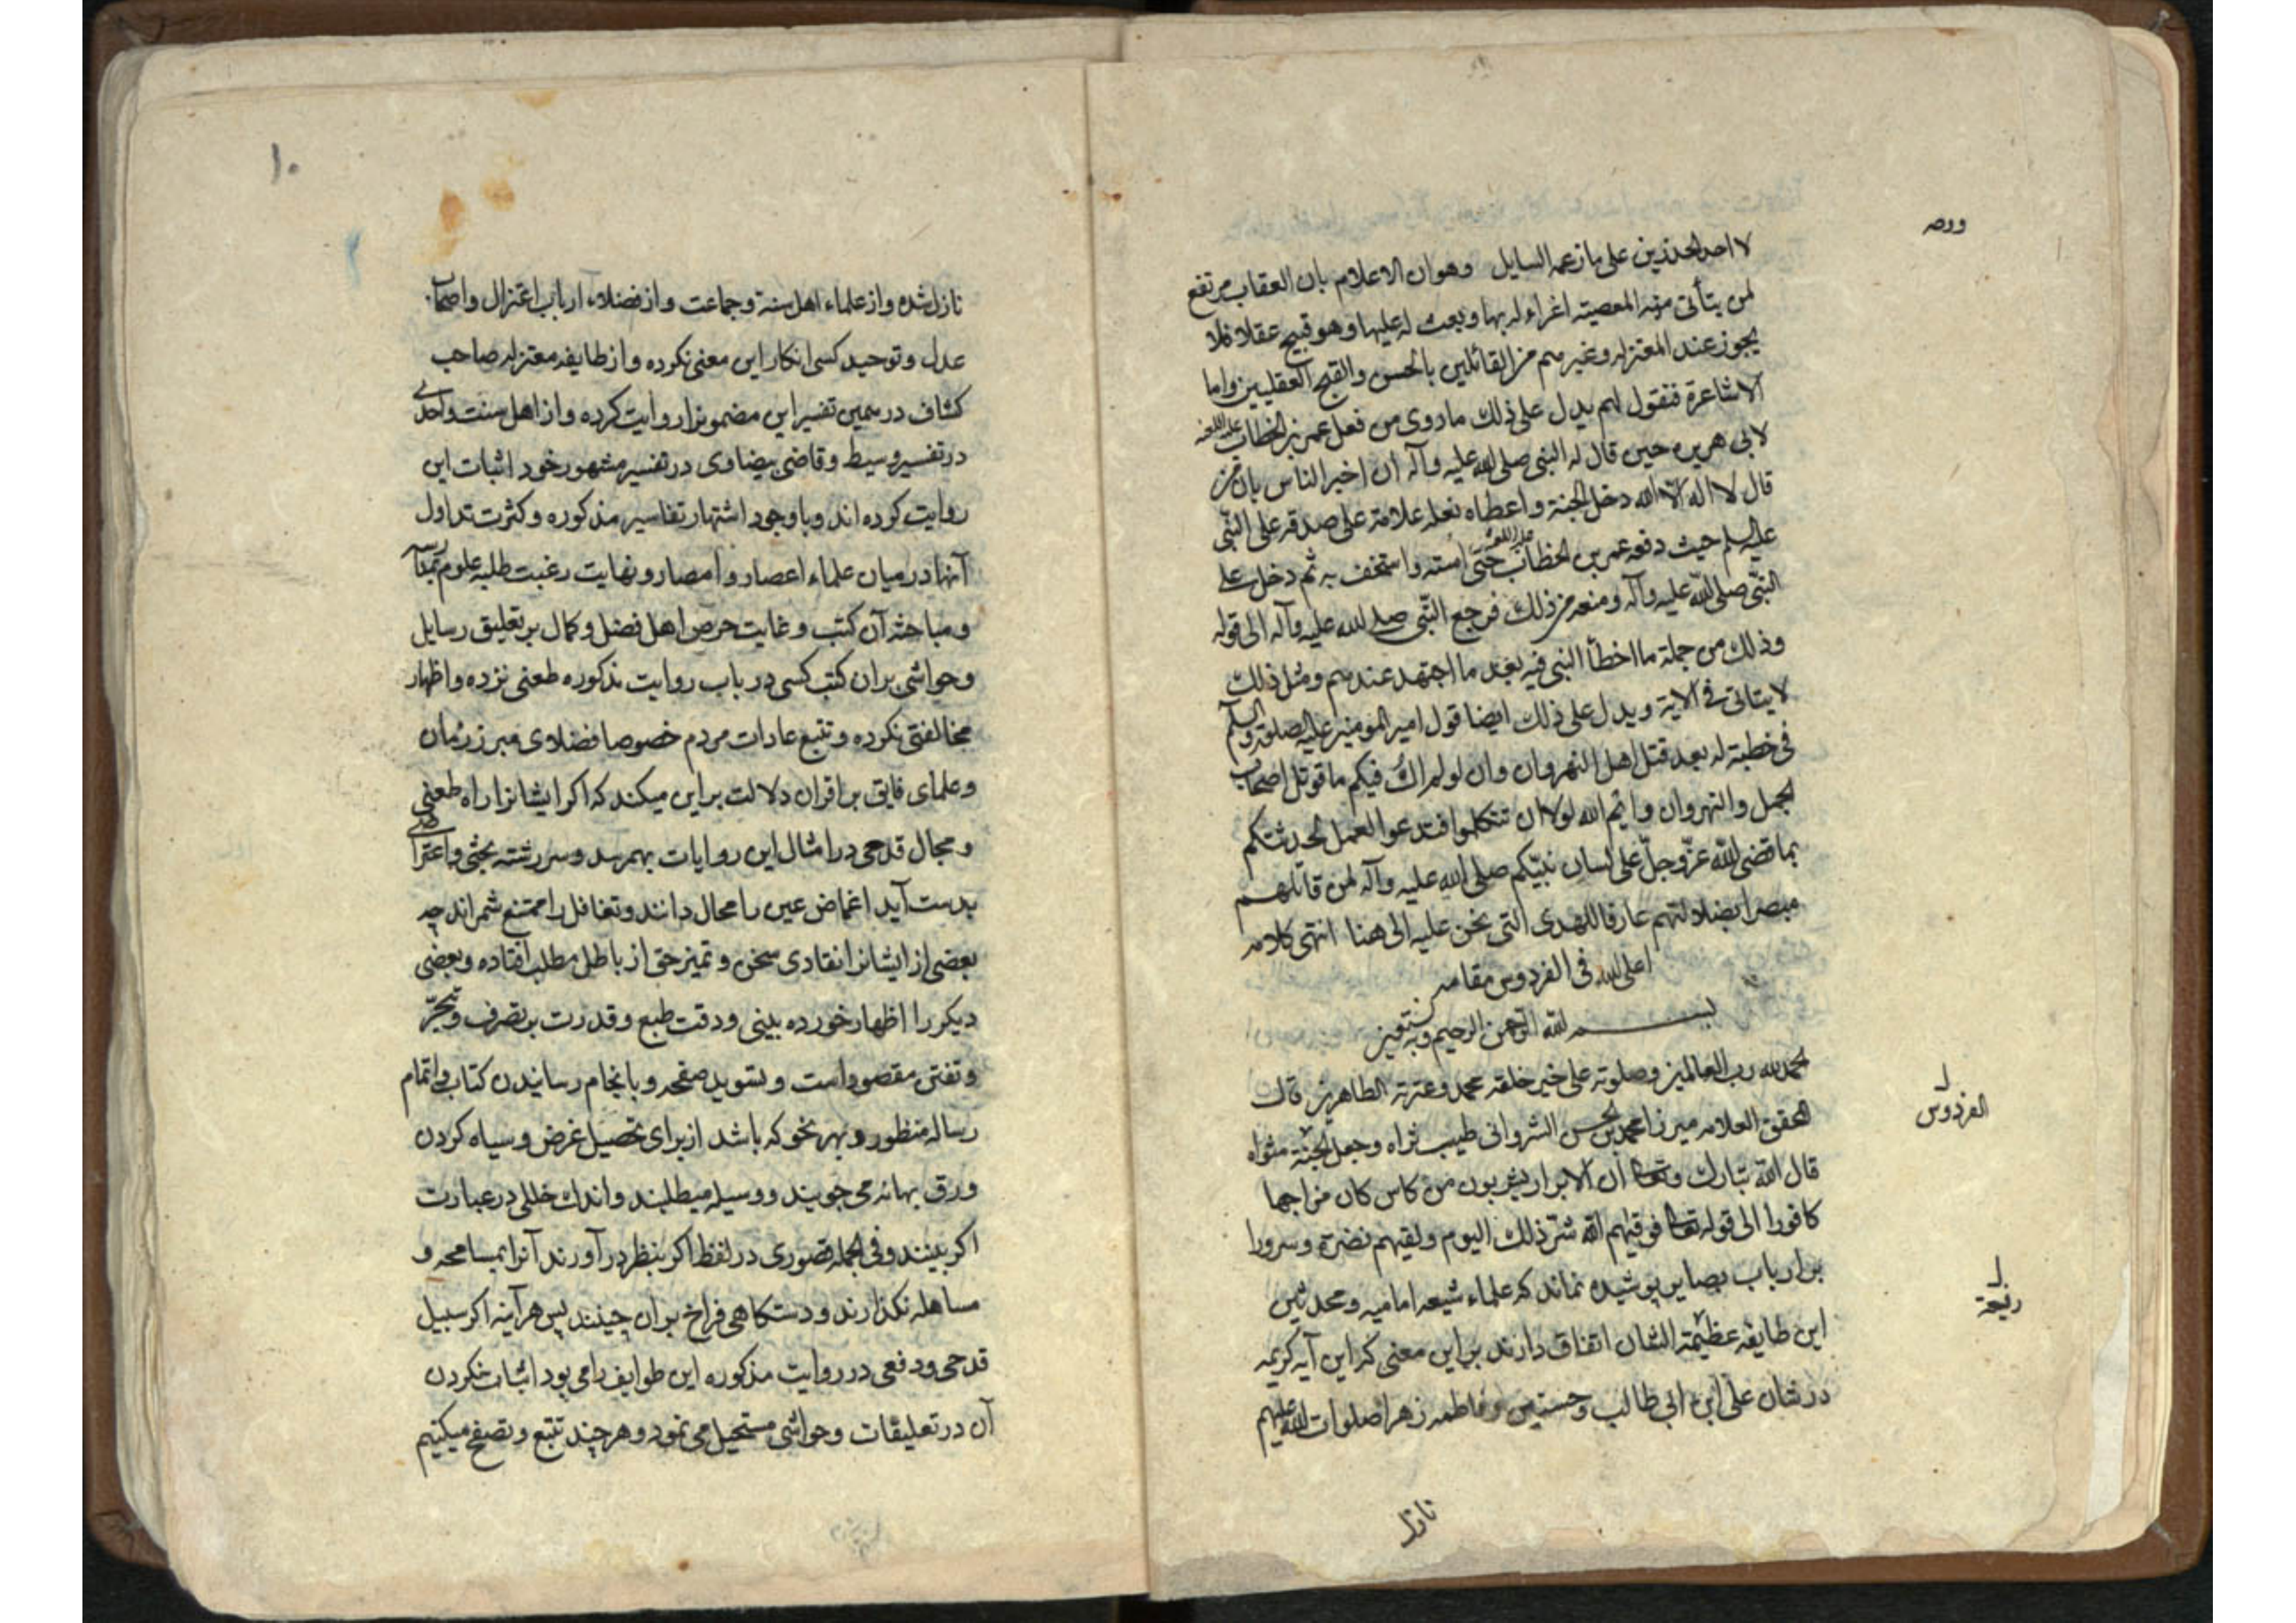 لا احد المحذورين على ما زعمه السايل وهو ان الاعلام بان العقاب مرتفع
لمن يتأتى منه المعصية اغراء له بها وبعث له عليها وهو قبيح عقلا فلا
يجوز عند المعتزله وغيرهم من القائلين بالحسن والقبح العقليين واما
الاشاعرة فنقول لهم يدل على ذلك ما روى من فعل عمر بن الخطاب
لابى هريره حين قال له النبى صلى الله عليه وآله ان اخبر الناس بان من
قال لا اله الا الله دخل الجنة واعطاه نعله علامة على صدقه على النبى
عليه السلم حيث دفعه عمر بن الخطاب حتى استه واستخف به ثم دخل على
النبى صلى الله عليه وآله ومنعه من ذلك فرجع النبى صلى الله عليه وآله الى قوله
وذلك من جملة ما اخطأ النبى فيه بعد ما اجتهد عندهم ومثل ذلك
لا يتاتى فى الاية ويدل على ذلك ايضا قول امير المومنين عليه الصلوة والسلم
فى خطبة له بعد قتل اهل النهروان وان لو لم اك فيكم ما قوتل اصحاب
الجمل والنهروان وايم الله لولا ان تتكلوا فتدعوا العمل لحدثتكم
بما قضى الله عز وجل على لسان نبيكم صلى الله عليه وآله لمن قاتلهم
مبصرا بضلالتهم عارفا للهدى التى نحن عليه الى هنا انتهى كلامه
اعلى الله فى الفردوس مقامه
بسم الله الرحمن الرحيم وبه نستعين
الحمد لله رب العالمين وصلوته على خير خلقه محمد وعترته الطاهرين قال
المحقق العلامه ميرزا محمد بن الحسن الشروانى طيب ثراه وجعل الجنة مثواه
قال الله تبارك وتعالى ان الابرار يشربون من كاس كان مزاجها
كافورا الى قوله تعالى فوقيهم الله شر ذلك اليوم ولقيهم نضرة وسرورا
بر ارباب بصاير پوشيده نماند كه علماء شيعه اماميه ومحدثين
اين طايفه عظيمة الشان اتفاق دارند بر اين معنى كه اين آيه كريمه
در شان على ابن ابى طالب وحسنين وفاطمه زهرا صلوات الله عليهم
الفردوس
نازل
۱۰
نازل شده واز علماء اهل سنة وجماعت واز فضلاء ارباب اعتزال واصحاب
عدل وتوحيد كسى انكار اين معنى نكرده واز طايفه معتزله صاحب
كشاف در همين تفسير اين مضمونرا روايت كرده واز اهل سنت واحدى
در تفسير وسيط وقاضى بيضاوى در تفسير مشهور خود اثبات اين
روايت كرده اند وباوجود اشتهار تفاسير مذكوره وكثرت تداول
آنها در ميان علماء اعصار وامصار ونهايت رغبت طلبه علوم بمدارسه
ومباحثه آن كتب وغايت حرص اهل فضل وكمال بر تعليق رسايل
وحواشى بر ان كتب كسى در باب روايت مذكوره طعنى نزده واظهار
مخالفتى نكرده وتتبع عادات مردم خصوصا فضلاى مبرز زمان
وعلماى فايق بر اقران دلالت بر اين ميكند كه اكر ايشانرا راه طعنى
ومجال قدحى در امثال اين روايات بهم رسد وسر رشته بحثى واعتراضى
بدست آيد اغماض عين را محال دانند وتغافل را ممتنع شمراند چه
بعضى از ايشانرا نقادى سخن وتميز حق از باطل مطلب افتاده وبعضى
ديكر را اظهار خورده بينى ودقت طبع وقدرت بر تصرف وتبحر
وتفتن مقصود است وبتسويد صفحه وبانجام رسانيدن كتاب واتمام
رساله منظور وبهر نحو كه باشد از براى تحصيل غرض وسياه كردن
ورق بهانه مى جويند ووسيله ميطلبند واندك خللى در عبارت
اكر بينند وفى الجمله قصورى در لفظ اكر بنظر در آورند آنرا بمسامحه و
مساهله نكذارند ودستكاهى فراخ بر ان چينند پس هر آينه اكر سبيل
قدحى ودفعى در روايت مذكوره اين طوايف را مى بود اثبات نكردن
آن در تعليقات وحواشى مستحيل مى نمود وهر چند تتبع وتصفح ميكنيم